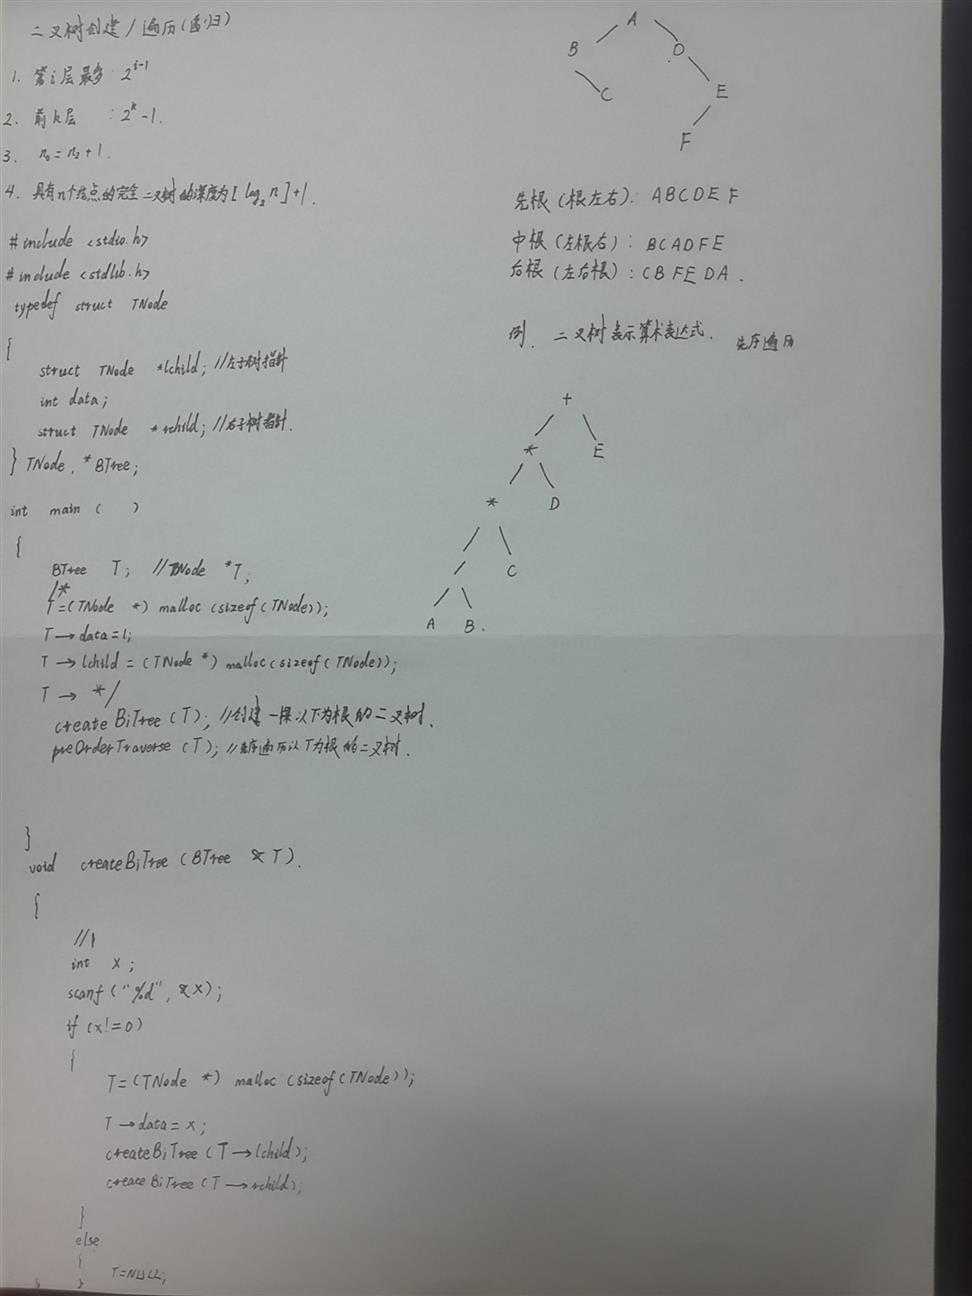 二叉树创建/遍历(递归)
1. 第i层最多: 2^{i-1}
2. 前k层 : 2^k-1.
3. n₀=n₂+1.
4. 具有n个结点的完全二叉树的深度为[log₂n]+1.
#include <stdio.h>
#include <stdlib.h>
typedef struct TNode
{
struct TNode *lchild; //左子树指针
int data;
struct TNode *rchild; //右子树指针.
} TNode, *BTree;
int main ( )
{
BTree T; //TNode *T;
/*
T=(TNode *) malloc (sizeof(TNode));
T→data=1;
T→lchild=(TNode *) malloc(sizeof(TNode));
T→ */
createBiTree(T); //创建一棵以下为根的二叉树.
preOrderTraverse(T); //先序遍历以T为根的二叉树.
}
void createBiTree(BTree &T).
{
//1
int x;
scanf("%d", &x);
if (x!=0)
{
T=(TNode *) malloc (sizeof(TNode));
T→data=x;
createBiTree(T→lchild);
createBiTree(T→rchild);
}
else
{
T=NULL;
}
A
B D
C E
F
先根(根左右): ABCDEF
中根(左根右): BCADFE
后根(左右根): CBFEDA.
例. 二叉树表示算术表达式. 先序遍历
+
* E
* D
/ C
A B.